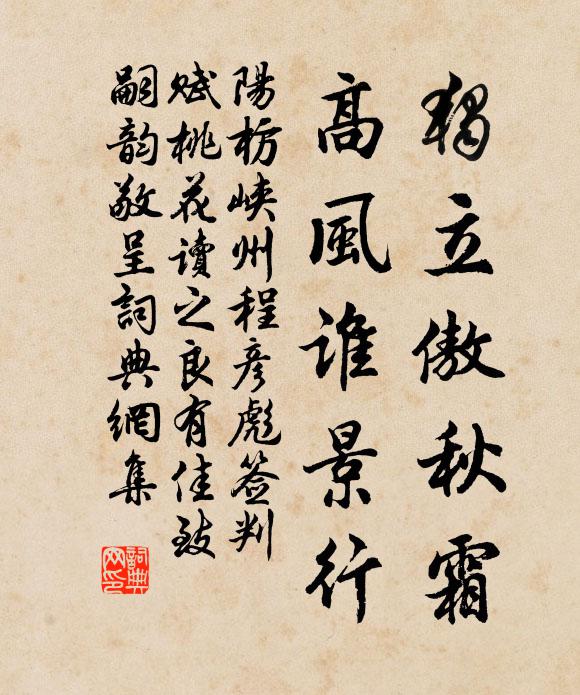 獨立傲秋霜
高風誰景行
陽枋峽州程彥彪簽判
賦桃花讀之良有佳致
嗣韵敬呈詞典網集
詞典网印